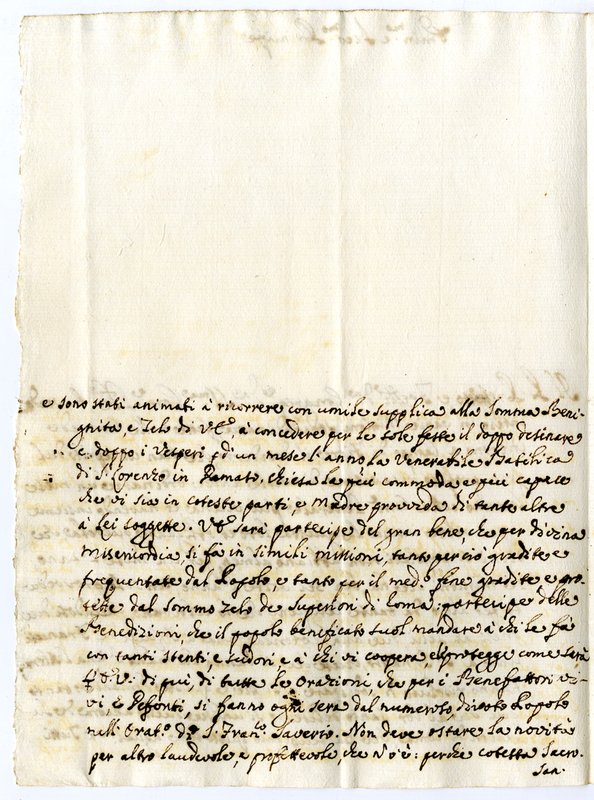 e sono stati animati à ricorrere con umile supplica alla somma Beni-
gnità, e Zelo di V.E. à concedere per le sole feste il doppo desinare
e doppo i Vesperi di un mese l'anno la Venerabile Basilica
di S. Lorenzo in Damaso, chiesa la più commoda e più capace
che vi sia in coteste parti, e Madre provvida di tante altre
à lei soggette. V.E. sarà partecipe del gran bene, che per divina
misericordia si fà in simili missioni, tanto perciò gradite e
frequentate dal Popolo, e tanto per il med.o fine gradite e pro-
tette dal sommo zelo de Superiori di Roma: partecipe delle
Benedizioni, che il popolo beneficato suol mandare à chi le fà
con tanti stenti, e sudori, e à chi vi coopera, e protegge come sarà
di più, di tutte le Orazioni, che per i Benefattori vi-
vi, e Defonti, si fanno ogni sera dal numeroso, divoto Popolo
nell'Orat.o di S. Fran.co Saverio. Non deve ostare la novità
per altro laudevole, e profittevole, che v'è: perche cotesta Sacro-
San-